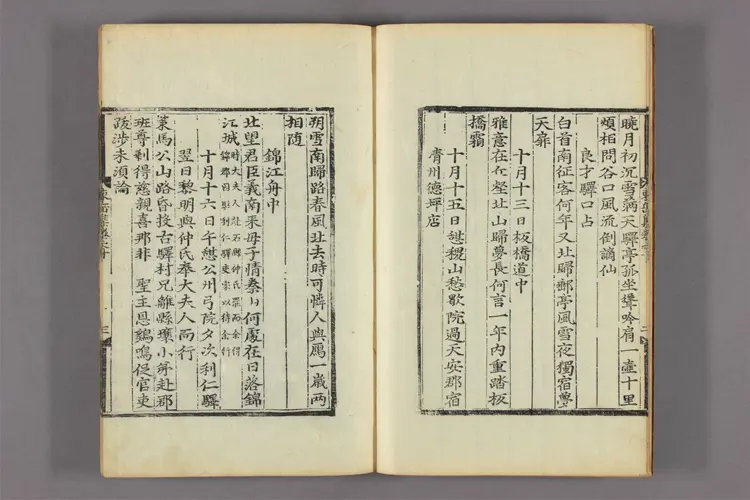 曉月初沉雪滿天驛亭孤坐聳吟肩一壺十里
頻相問谷口風流倒謫仙
良才驛口占
白首南征客何年又北歸郵亭風雪夜獨宿夢
天扉
十月十三日板橋道中
雅意在丘壑北山歸夢長何言一年內重踏板
橋霜
十月十五日憩稷山愁歇院過天安郡宿
靑州德坪店
朔雪南歸路春風北去時可憐人與鴈一歲兩
相隨
錦江舟中
北望君臣義南來母子情秦山何處在日落錦
江城
十月十六日午憩公州弓院夕次利仁驛
翌日黎明與仲氏奉大夫人而行
策馬公山路昏投古驛村兄離縣壤小弟赴郡
班尊剩得慈親喜那非 聖主恩鷄鳴促官吏
跋涉未須論